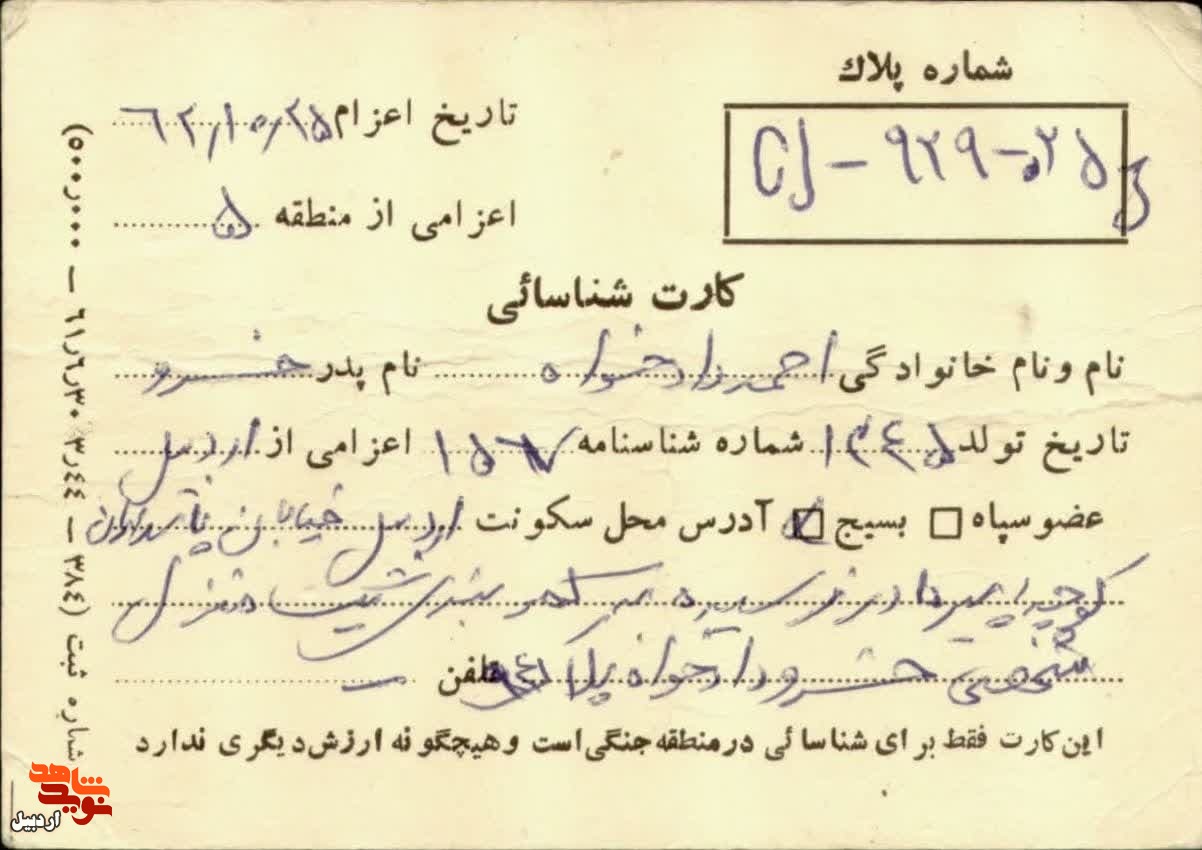 شماره پلاک
CJ - ۹۲۹ - ۰۲۵
تاریخ اعزام ۶۲٫۱۰٫۲۵
اعزامی از منطقه ۵
کارت شناسائی
نام و نام خانوادگی احمد دادخواه نام پدر خسرو
تاریخ تولد ۱۳۴۵ شماره شناسنامه ۱۵۷ اعزامی از اردبیل
عضو سپاه □ بسیج آدرس محل سکونت اردبیل خیابان پاسداران
کوچه پیرمادر نرسیده به کمربندی پشت منزل
شخصی خسرو دادخواه پلاک تلفن –
این کارت فقط برای شناسائی در منطقه جنگی است و هیچگونه ارزش دیگری ندارد
شماره ثبت (۳۸۴ – ۴۴ر۳ ۳۰ر۶ر۶۱ – ۵۰۰ر۰۰۰)
نوید شاهد
اردبیل